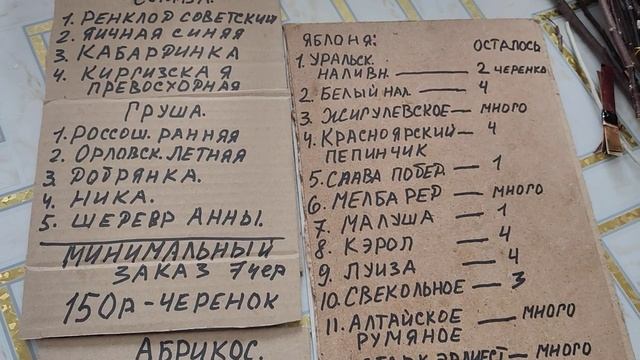 1. РЕНКЛОД СОВЕТСКИЙ
2. ЯИЧНАЯ СИНЯЯ
3. КАБАРДИНКА
4. КИРГИЗСКАЯ
ПРЕВОСХОРНАЯ
ГРУША.
1. РОССОШ. РАННЯЯ
2. ОРЛОВСК. ЛЕТНЯЯ
3. ДОБРЯНКА.
4. НИКА.
5. ШЕРЕВР АННЫ.
МИНИМАЛЬНЫЙ
ЗАКАЗ 7 чер
150р-ЧЕРЕНОК
АБРИКОС.
ЯБЛОНЯ: ОСТАЛОСЬ
1. УРАЛЬСК.
НАЛИВН. — 2 ЧЕРЕНКА
2. БЕЛЫЙ НАЛ. — 4
3. ЖИГУЛЕВСКОЕ — МНОГО
4. КРАСНОЯРСКИЙ — 4
ПЕПИНЧИК
5. СЛАВА ПОБЕД. — 1
6. МЕЛБА РЕД — МНОГО
7. МАЛУША — 1
8. КЭРОЛ — 4
9. ЛУИЗА — 4
10. СВЕКОЛЬНОЕ — 3
11. АЛТАЙСКОЕ — МНОГО
РУМЯНОЕ
МНОГО